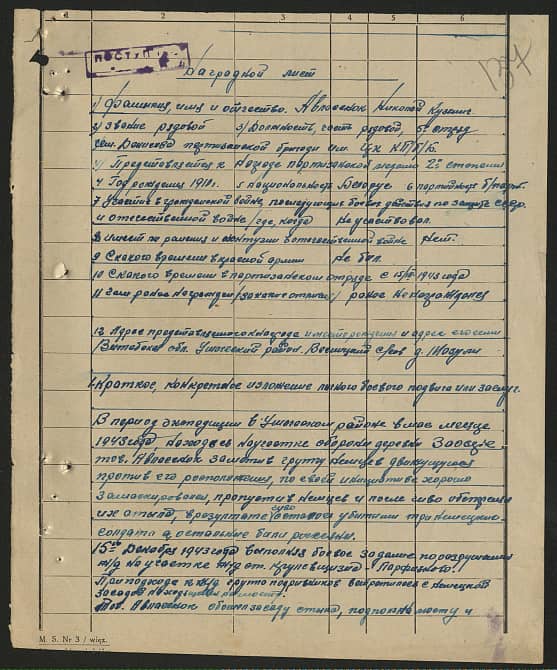 1 2 3 4 5 6
ПОСТУП
137
Наградной лист
1) Фамилия, имя и отчество. Авласенок Николай Кузьмич.
2) Звание рядовой 3) Должность, часть рядовой, 5й отряд
партизанской бригады им. ЦК КП/б/Б.
4) Представляется к награде партизанской медали 2ой степени
4 Год рождения 1918г. 5 национальность Белорус 6 партийность б/парт.
7 Участие в гражданской войне, последующих боевых действиях по защите СССР
и отечественной войне /где, когда Не участвовал.
8 имеет ли ранения и контузии в отечественной войне Нет.
9 С какого времени в красной армии Не был.
10 С какого времени в партизанском отряде с 1943 года
11 Чем ранее награжден /за какие отличия/ ранее не награждался
12 Адрес представляемого к награде и адрес его семьи
Витебская обл. Ушачский район. с/сов д.
Краткое, конкретное изложение личного боевого подвига или заслуг.
В период экспедиции в Ушачском районе в мае месяце
1943 года находясь на участке обороны деревни
тов. Авласенок заметив группу немцев движущуюся
против его расположения, по своей инициативе хорошо
замаскировался, пропустив немцев и после чиво обстрелял
их с тыла, в результате чиво осталося убитыми три немецких
солдата а остальные были рассеяны.
15го Декабря 1943 года выполняя боевое задание по разрушению
ж/д на участке ж/д от. Крулевщизна - Парфяново.
При подходе к ж/д группа подрывников встретилась с немецкой
засадой
Тов. Авласенок обошел засаду с тыла, подполз к мосту и
M. S. Nr 3 / więz.